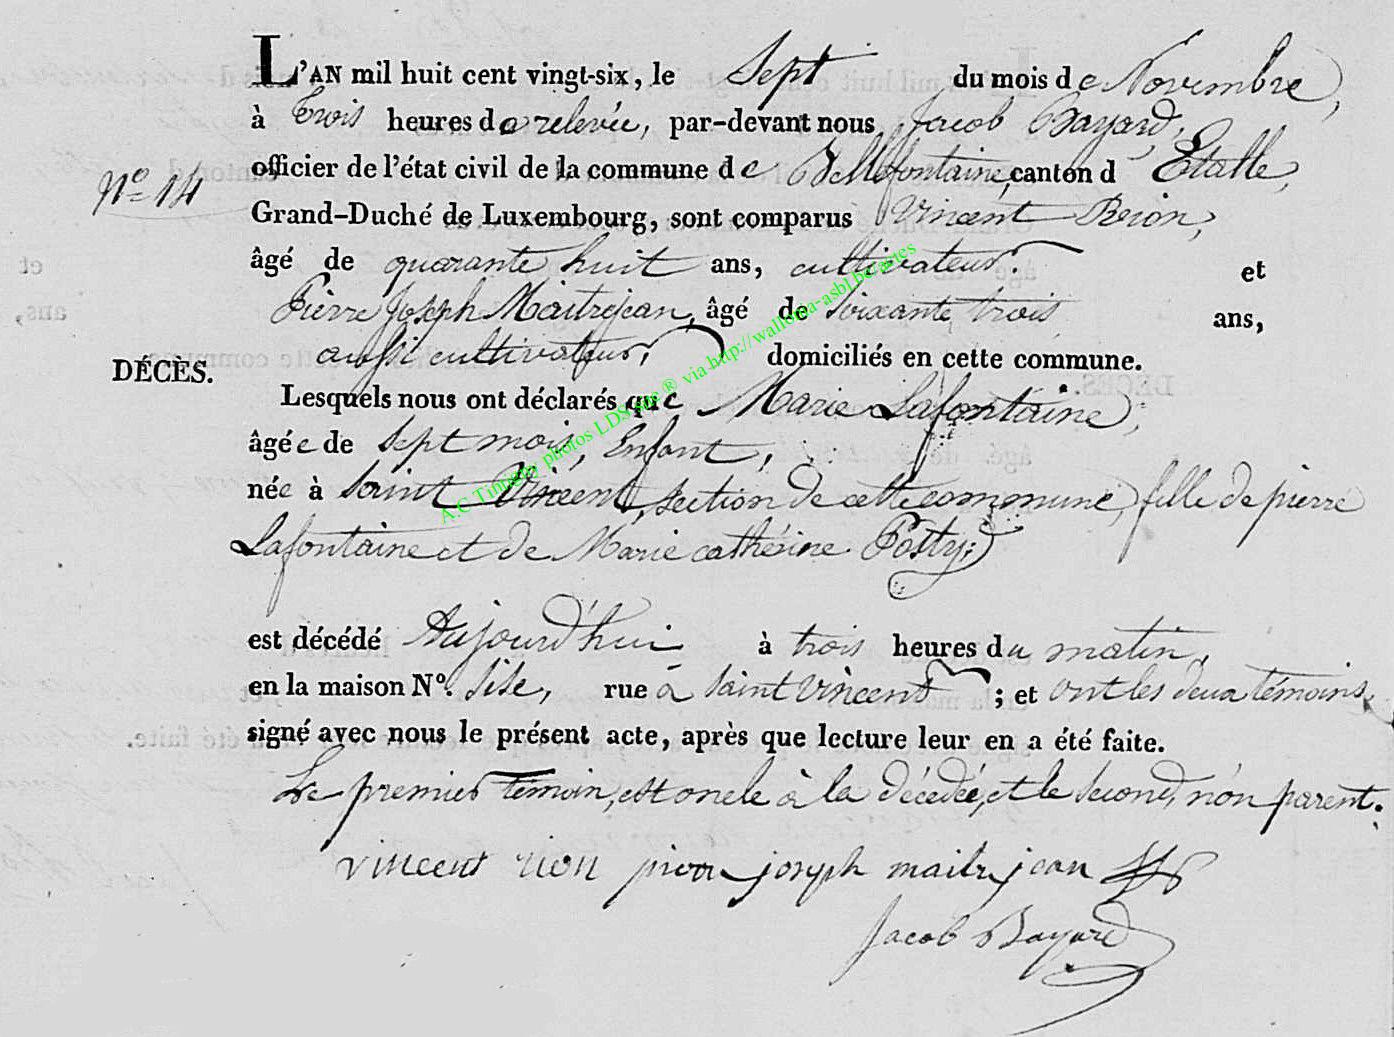 L'AN mil huit cent vingt-six, le Sept du mois de Novembre,
à Trois heures de relevée, par-devant nous Jacob Bayard,
officier de l'état civil de la commune de Bellefontaine, canton d Etalle,
N.º 14
Grand-Duché de Luxembourg, sont comparus Vincent Rion,
âgé de quarante huit ans, cultivateur. et
Pierre Joseph Maitrejean, âgé de soixante trois ans,
aussi cultivateur, domiciliés en cette commune.
DÉCÈS.
Lesquels nous ont déclarés que Marie Lafontaine,
âgée de sept mois, Enfant,
née à Saint Vincent, section de cette commune, fille de pierre
Lafontaine et de Marie cathérine Posty;
est décédé Aujourd'hui à trois heures du matin,
en la maison Nº. sise, rue à Saint Vincent ; et ont les deux témoins
signé avec nous le présent acte, après que lecture leur en a été faite.
Le premier témoin, est oncle à la décédée, et le second, non parent.
vincent rion pierre joseph maitrejean
Jacob Bayard
A.C Tintigny photos LDS site ® via http://wallonia-asbl.be/actes